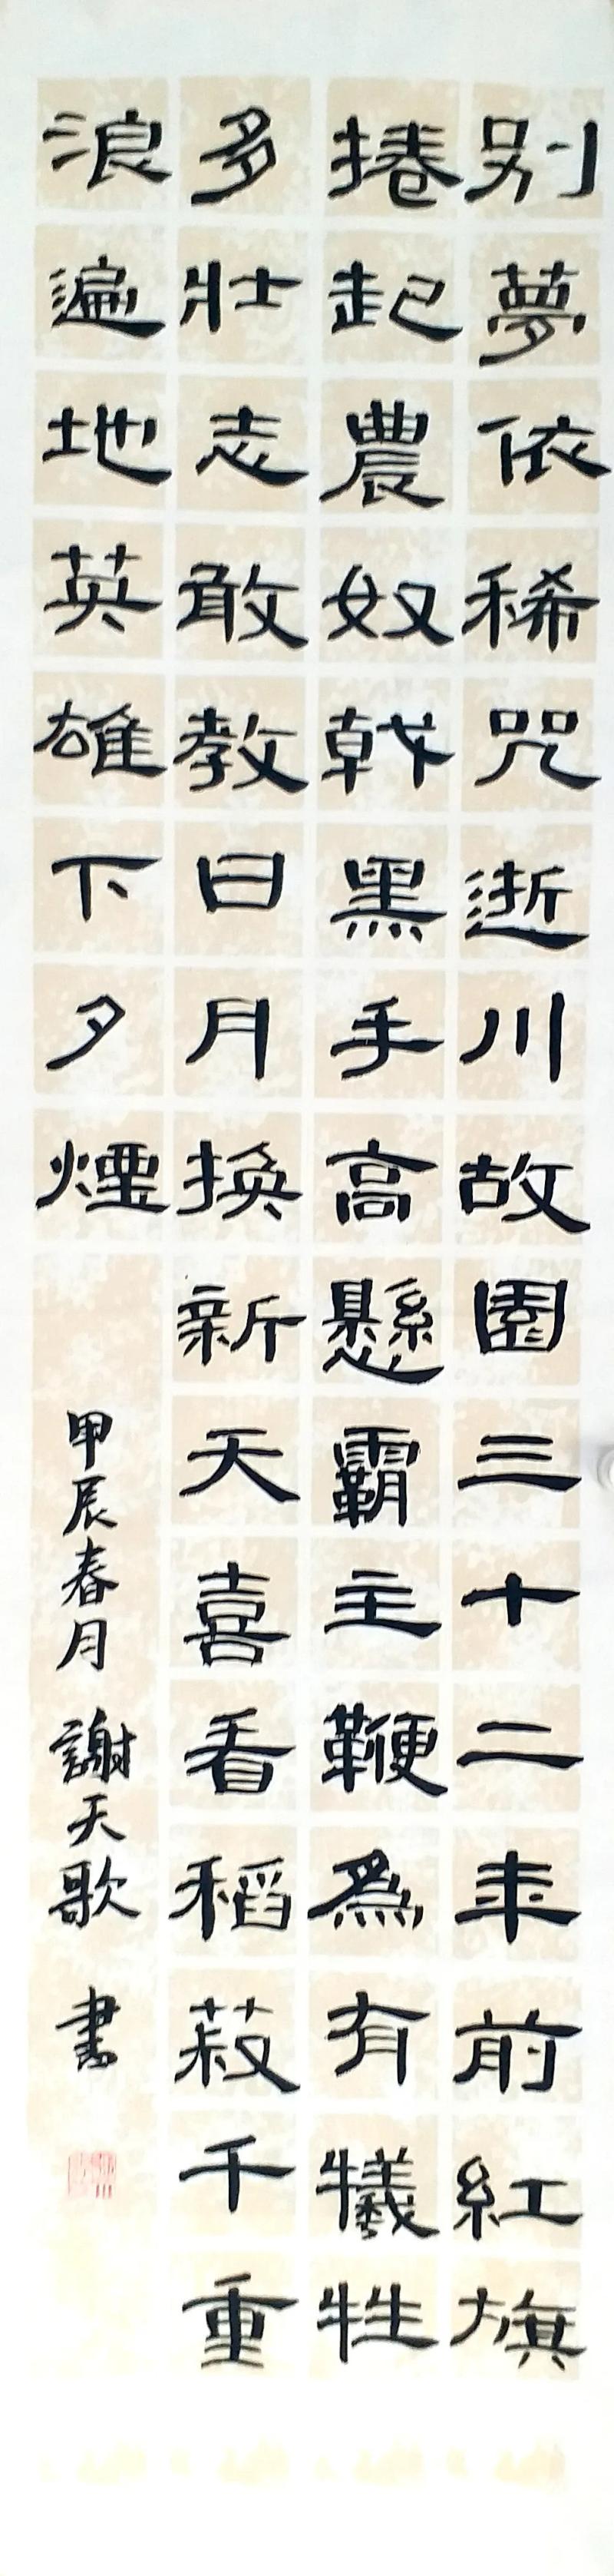 别夢依稀咒逝川故園三十二年前紅旗
捲起農奴戟黑手高懸霸主鞭爲有犧牲
多壯志敢教日月換新天喜看稻菽千重
浪遍地英雄下夕煙
甲辰春月謝天歌書